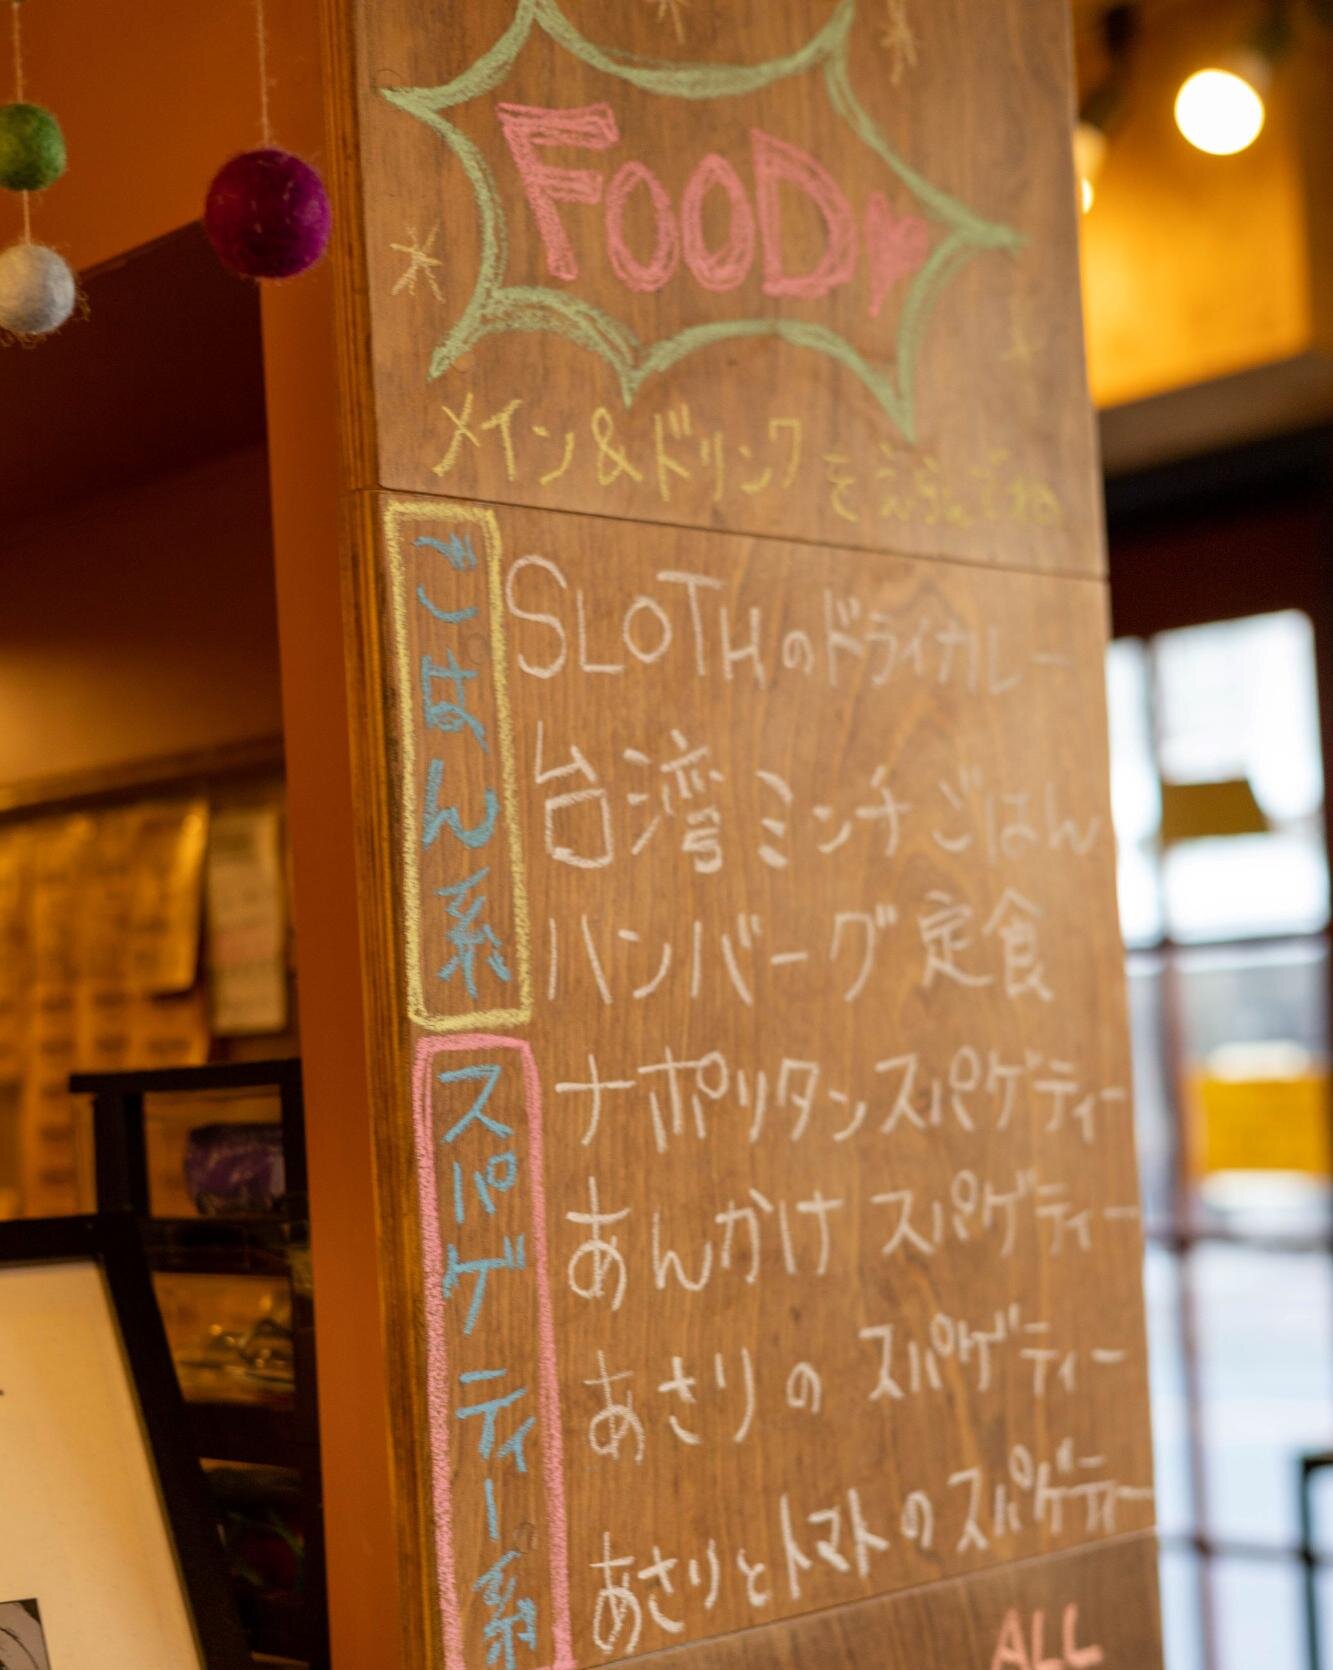 FOOD
メイン&ドリンクをえらんでね
ごはん系
SLOTHのドライカレー
台湾ミンチごはん
ハンバーグ定食
スパゲティー系
ナポリタンスパゲティー
あんかけスパゲティー
あさりのスパゲティー
あさりとトマトのスパゲティー
ALL